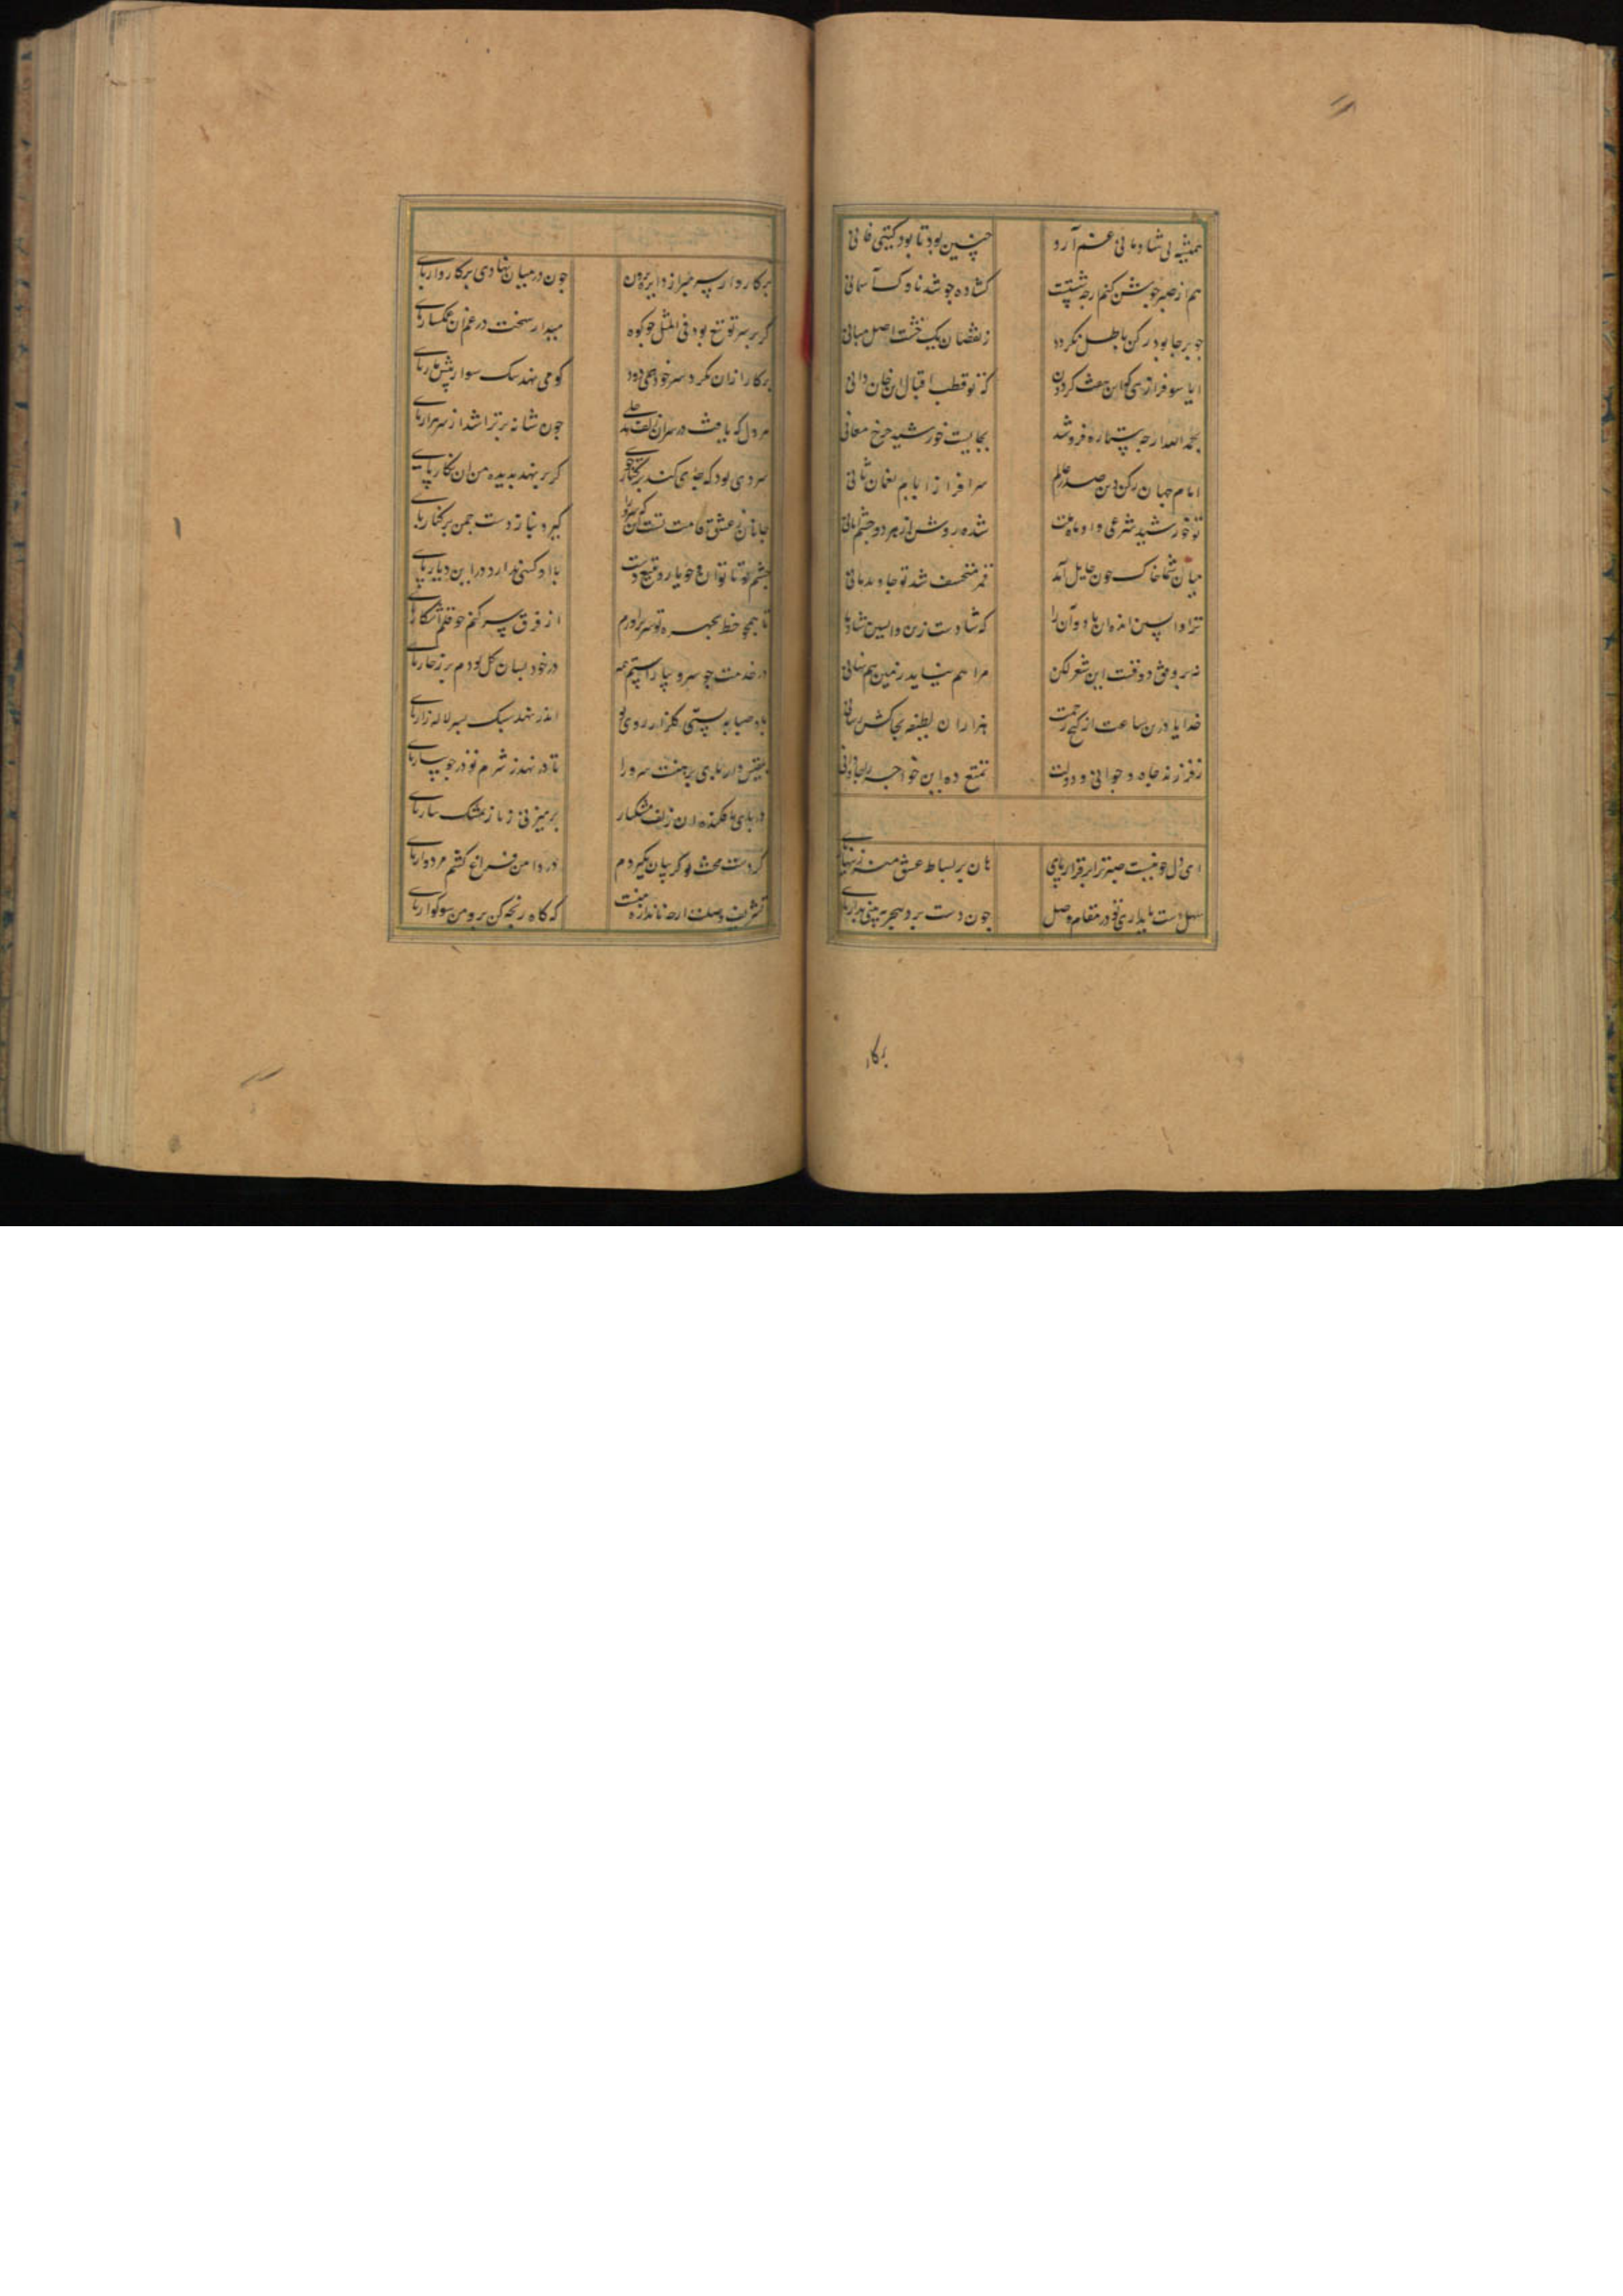 همیشه پی شادمانی غم آرد چنین بود تا بود گیتی فانی
هم از صبر جوشن کنم ارچه شستت گشاده چو شد ناوک آسمانی
چو برجا بود رکن باطل نگردد ز نقصان یک خشت اصل مبانی
ایا سرفرازی که این هفت گردون که تو قطب اقبال این خان دانی
بحمد الله ارچه ستاره فروشد بجایست خورشید چرخ معانی
امام جهان رکن دین صدر عالم سرافراز ایام نعمان ثانی
تو خورشید شرعی و او ماه ملت شده روشن از هر دو چشم امانی
میان شما خاک چون حایل آمد قمر منخسف شد تو جاوید مانی
ترا واپسین انده آن باد و آن را که شادست زین واپسین شادمانی
نه بر وفق وقت این شعر لکن مرا هم نیاید زمین هم نهانی
خدایا درین ساعت از گنج رحمت هزاران لطیفه بخاکش رسانی
ز فرزند و جاه و جوانی و دولت تمتع ده این خواجه را جاودانی
ای دل چو نیست صبر ترا برقرار پای هان بر بساط عشق منه زینهار پای
سهل است پایداری تو در مقام وصل چون دست برد هجر ببینی بدار پای
بکار
پرکار وار سر مبر از دایره برون چون در میان نهادی پرکار وار پای
گر بر سر تو تیغ بود فی المثل چو کوه میدار سخت در غم آن غمگسار پای
پرکار ازان نکرد سر خود همی رود کو می نهد سبک سوار پیش مار پای
هر دل که یافت در سر آن زلف جای چون شانه بر تراشد از سر هزار پای
سروی بود که جای کند بر کنار جوی گر بر نهد بدیده من آن نگار پای
جانا ز عشق قامت تست آن که سرو را گیرد نیاز دست چمن بر کنار پای
چشم تو ناتوان چو بیازد بتیغ دست با او کسی ندارد در این دیار پای
تا همچو خط بچهره تو سر برآورم از فرق سر کنم چو قلم آشکار پای
در خدمت چو سرو بپا ایستم همه در خود بسان گل بودم پر ز خار پای
باد صبا به پستی گلزار روی تو اندر نهد سبک بسر لاله زار پای
بلقیس وار پای برهنست سرو را تا در نهد ز شرم تو در جویبار پای
در پای تا فکنده آن زلف مشکبار بر میزنی ز ناز بمشک تتار پای
گر دست محنت تو گریبان نگیردم در دامن فراغ کشم مردوار پای
تشریف وصلت ارچه نه اندازه منست گه گاه رنجه کن بر من سوگوار پای